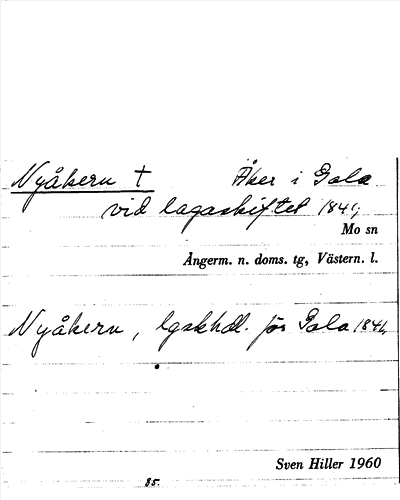 Nyåkern † Åker i Gala
vid lagaskiftet 1841,
Mo sn
Ångerm. n. doms. tg, Västern. l.
Nyåkern, lgskhdl. för Gala 1841,
Sven Hiller 1960
85.